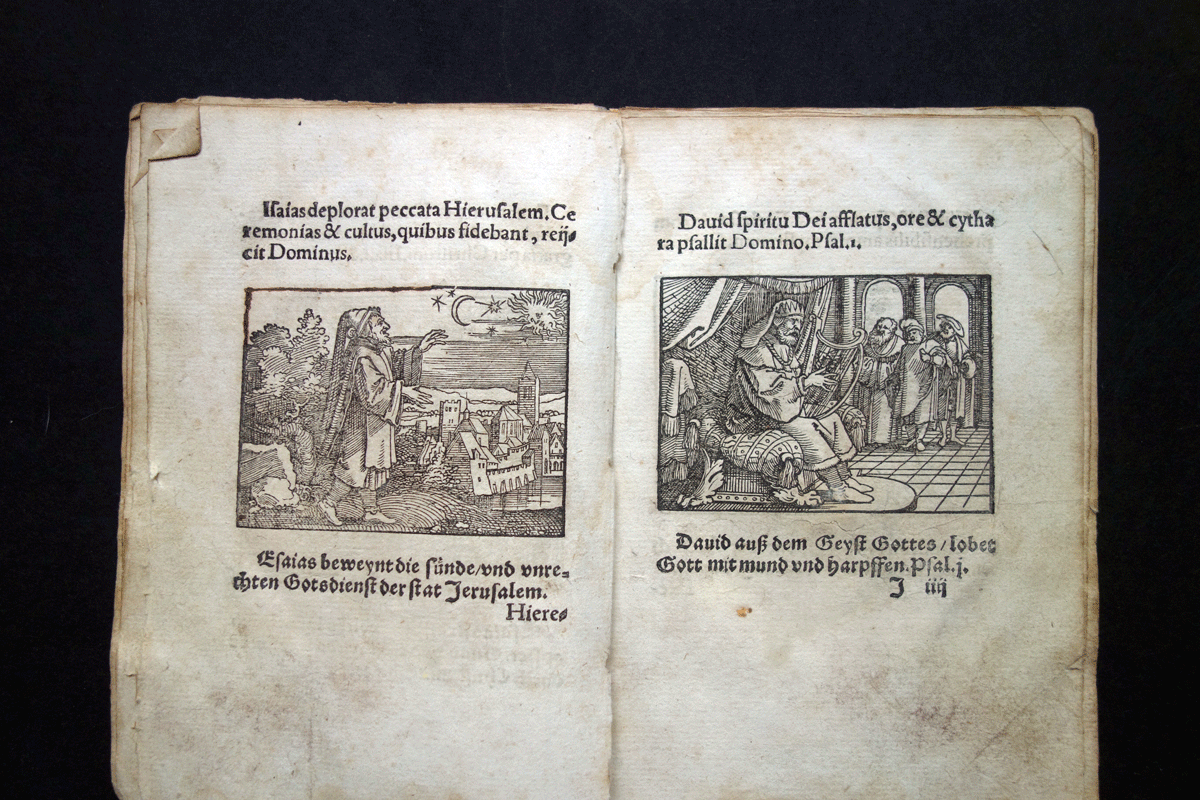 Isaias deplorat peccata Hierusalem. Ce
remonias & cultus, quibus fidebant, reij⸗
cit Dominus.
Esaias beweynt die sünde/vnd vnre⸗
chten Gotsdienst der stat Jerusalem.
Hiere⸗
Dauid spiritu Dei afflatus, ore & cytha
ra psallit Domino. Psal.1.
Dauid auß dem Geyst Gottes/lobet
Gott mit mund vnd harpffen. Psal.j.
J iiij